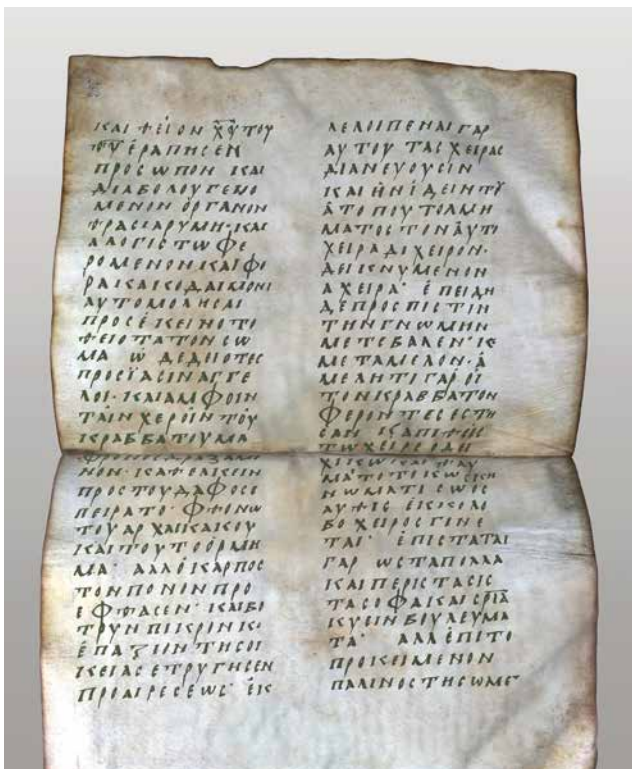 ΚΑΙ ΘΕΙΟΝ Χ̅Υ̅ ΤΟΥ
Θ̅Υ̅ ΕΡΑΠΗΣΕΝ
ΠΡΟΣΩΠΟΝ ΚΑΙ
ΔΙΑΒΟΛΟΥ ΓΕΝΟ
ΜΕΝΟΝ ΟΡΓΑΝΟΝ
ΘΡΑΣΕΙ ΡΥΜΗ ΚΑΙ
ΛΛΟΓΙΣΤΩ ΦΕ
ΡΟΜΕΝΟΝ ΚΑΙ ΦΟ
ΡΑ ΚΑΚΟΔΑΙΜΟΝΙ
ΑΥΤΟΜΟΛΗΣΑΙ
ΠΡΟΣ ΕΚΕΙΝΟ ΤΟ
ΘΕΙΟΤΑΤΟΝ ΣΩ
ΜΑ Ω ΔΕΔΙΟΤΕΣ
ΠΡΟΣΪΑΣΙΝ ΑΓΓΕ
ΛΟΙ· ΚΑΙ ΑΜΦΟΙΝ
ΤΑΙΝ ΧΕΡΟΙΝ ΤΟΥ
ΚΡΑΒΒΑΤΙΟΥ ΜΑ
ΝΟΝ· ΚΑΘΕΛΚΕΙΝ
ΠΡΟΣ ΤΟΥΔΑΦΟΣ Ε
ΠΕΙΡΑΤΟ· ΦΘΟΝΩ
ΤΟΥ ΑΡΧΑΙΚΑΚΟΥ
ΚΑΙ ΤΟΥΤΟ ΟΡΜΗ
ΜΑ· ΑΛΛ Ο ΚΑΡΠΟΣ
ΤΟΝ ΠΟΝΟΝ ΠΡΟ
ΕΦΘΑΣΕΝ· ΚΑΙ ΒΟ
ΤΡΥΝ ΠΙΚΡΙΝ Κ
ΕΠΑΞΙΟΝ ΤΗΣ ΟΙ
ΚΕΙΑΣ ΕΤΡΥΓΗΣΕΝ
ΠΡΟΑΙΡΕΣΕΩΣ· ΕΚ
ΛΕΛΟΙΠΕΝΑΙ ΓΑΡ
ΑΥΤΟΥ ΤΑΣ ΧΕΙΡΑΣ
ΔΙΑΝΕΥΟΥΣΙΝ
ΚΑΙ ΗΝ ΙΔΕΙΝ ΤΟΥ
ΑΤΟΠΟΥ ΤΟΛΜΗ
ΜΑΤΟΣ ΤΟΝ ΑΥΤΟ
ΧΕΙΡΑ ΔΙ ΧΕΙΡΟΝ·
ΔΕΙΚΝΥΜΕΝΟΝ
ΑΧΕΙΡΑ· ΕΠΕΙΔΗ
ΔΕ ΠΡΟΣ ΠΙΣΤΙΝ
ΤΗΝ ΓΝΩΜΗΝ
ΜΕΤΕΒΑΛΕΝ· Κ
ΜΕΤΑΜΕΛΟΝ· Α
ΜΕΛΗΤΙ ΓΑΡ ΟΙ
ΤΟΝ ΚΡΑΒΒΑΤΟΝ
ΦΕΡΟΝΤΕΣ ΕΣΤΗ
ΣΑΝ ΚΑΠΙΘΕΙΣ
ΤΩ ΧΕΙΡΕ
ΑΥΘΙΣ ΕΚ ΚΟΛΟ
ΒΟΧΕΙΡΟΣ ΓΙΝΕ
ΤΑΙ· ΕΠΙΣΤΑΤΑΙ
ΓΑΡ ΩΣ ΤΑ ΠΟΛΛΑ
ΚΑΙ ΠΕΡΙΣΤΑΣΙΣ
ΤΑ ΣΟΦΑ ΚΑΙ
ΚΥΕΙΝ ΒΟΥΛΕΥΜΑ
ΤΑ· ΑΛΛ ΕΠΙ ΤΟ
ΠΡΟΚΕΙΜΕΝΟΝ
ΠΑΛΙΝΟΣΤΗΣΩΜΕ